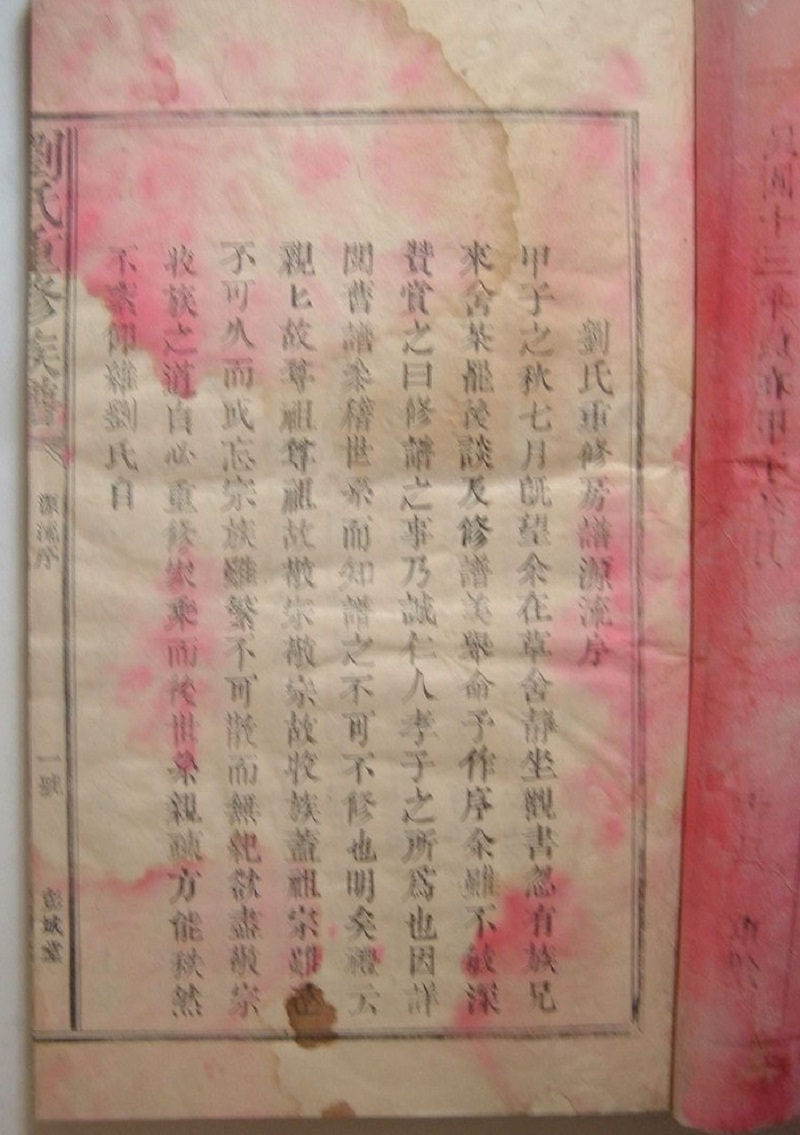 劉氏重修房譜源流序
甲子之秋七月旣望余在草舍靜坐觀書忽有族兄
來舍茶罷後談及修譜美舉命予作序余雖不敏深
贊賞之曰修譜之事乃誠仁人孝子之所爲也因詳
閱舊譜參稽世系而知譜之不可不修也明矣禮云
親匕故尊祖尊祖故敬宗敬宗故收族蓋祖宗雖遠
不可久而或忘宗族雖繁不可散而無紀欲盡敬宗
收族之道自必重修家乘而後世系親疎方能秩然
不紊仰維劉氏自
劉氏重修族譜
源流序
一號
彭城堂